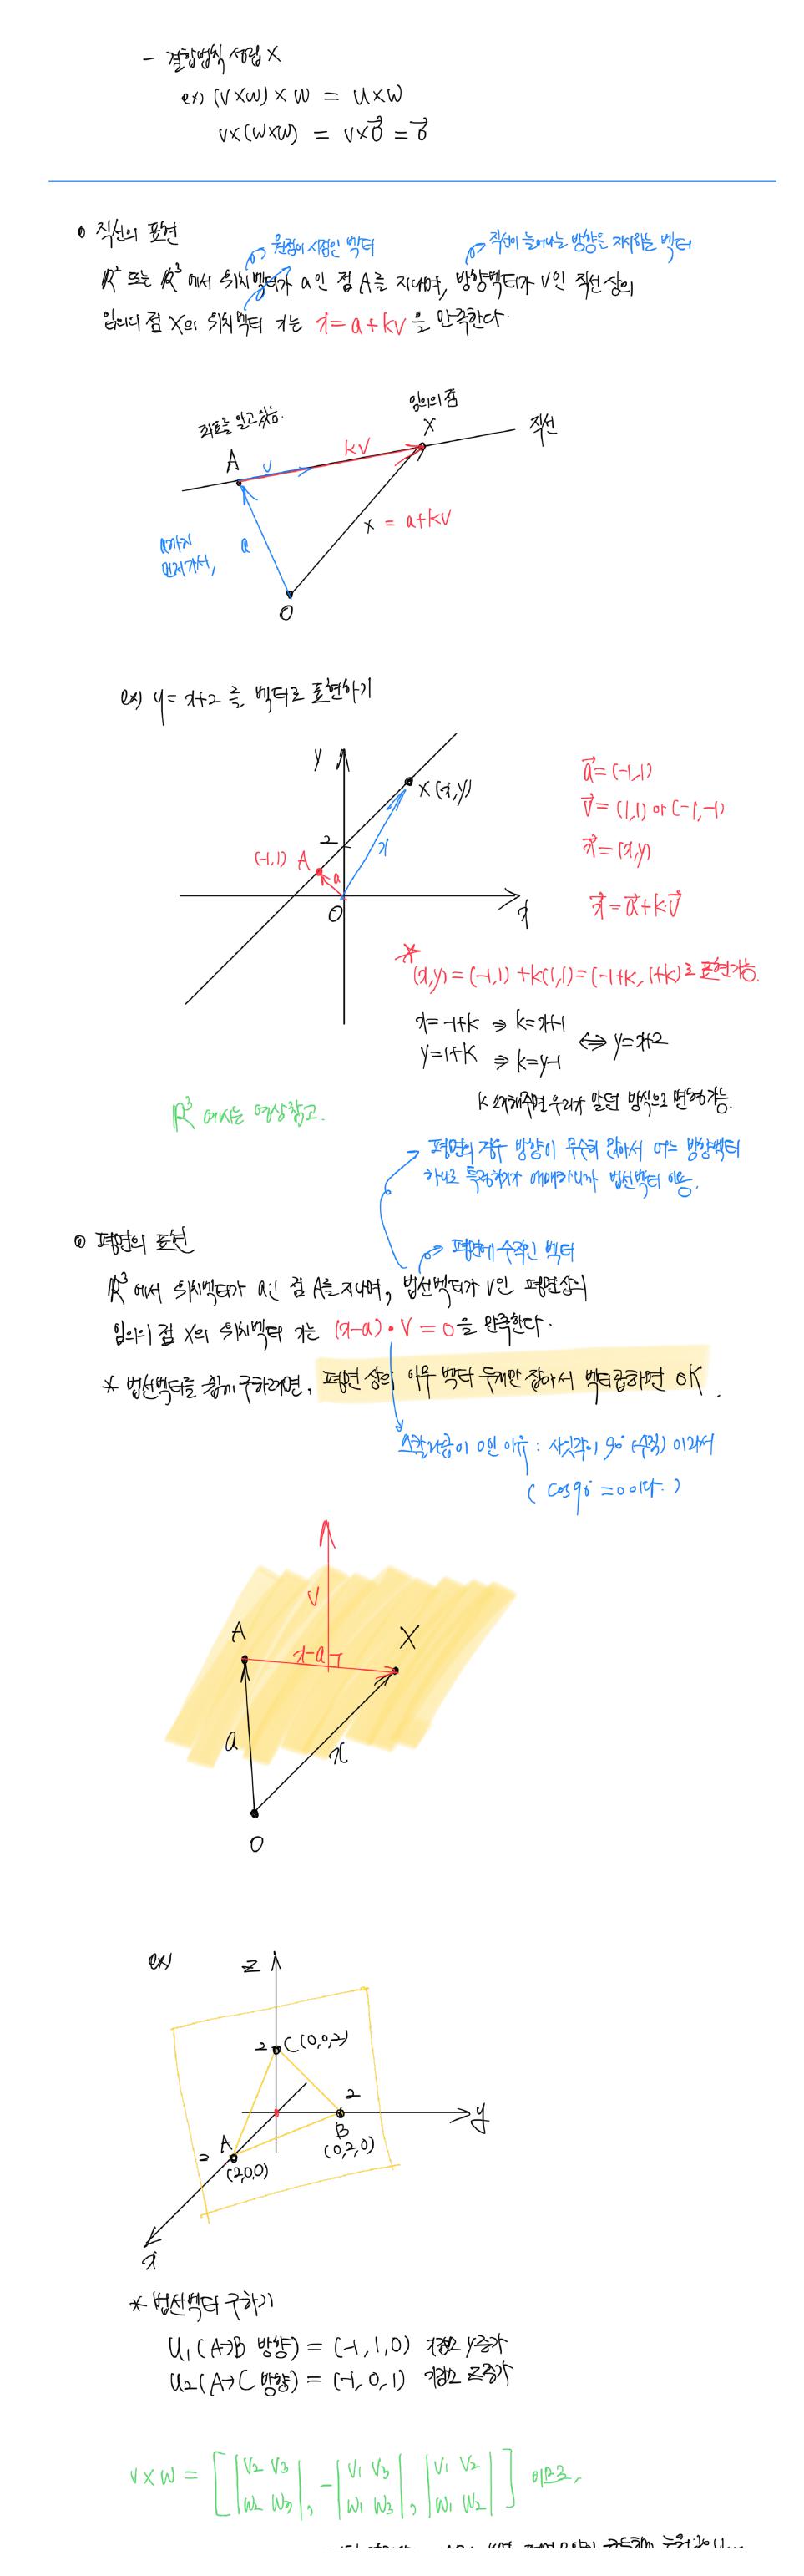 - 결합법칙 성립 X
ex) (v×w)×w = u×w
v×(w×w) = v×0 = 0
직선의 표현
원점이 시점인 벡터
직선이 늘어나는 방향을 지시하는 벡터
R² 또는 R³에서 위치벡터가 a인 점 A를 지나며, 방향벡터가 v인 직선 상의
임의의 점 X의 위치벡터 x는 x=a+kv 을 만족한다.
좌표를 알고 있음.
임의의 점
X
직선
A
v
kv
a까지
먼저가서,
a
x = a+kv
O
ex) y=x+2 를 벡터로 표현하기
y
X(x,y)
2
(-1,1) A
a
x
O
x
a=(-1,1)
v=(1,1) or (-1,-1)
x=(x,y)
x=a+k·v
(x,y)=(-1,1)+k(1,1)=(-1+k, 1+k)로 표현가능.
x=-1+k ⇒ k=x+1
y=1+k ⇒ k=y-1
⇔ y=x+2
k 소거해주면 우리가 알던 방식으로 변형가능.
R³ 예시는 영상참고.
평면의 경우 방향이 무수히 많아서 어느 방향벡터
하나로 특정하기가 애매하니까 법선벡터 이용.
평면의 표현
평면에 수직인 벡터
R³에서 위치벡터가 a인 점 A를 지나며, 법선벡터가 v인 평면상의
임의의 점 X의 위치벡터 x는 (x-a)·v=0을 만족한다.
* 법선벡터를 쉽게 구하려면, 평면 상의 아무 벡터 두개만 잡아서 벡터곱하면 OK.
스칼라곱이 0인 이유 : 사잇각이 90°(수직) 이라서
(cos90°=0이다.)
v
A
X
x-a
a
x
O
ex)
z
2 C(0,0,2)
2
y
B
(0,2,0)
2 A
(2,0,0)
x
* 법선벡터 구하기
u₁(A→B 방향) = (-1,1,0) x감소 y증가
u₂(A→C 방향) = (-1,0,1) x감소 z증가
v×w = [ |v₂ v₃ / w₂ w₃|, -|v₁ v₃ / w₁ w₃|, |v₁ v₂ / w₁ w₂| ] 이므로,